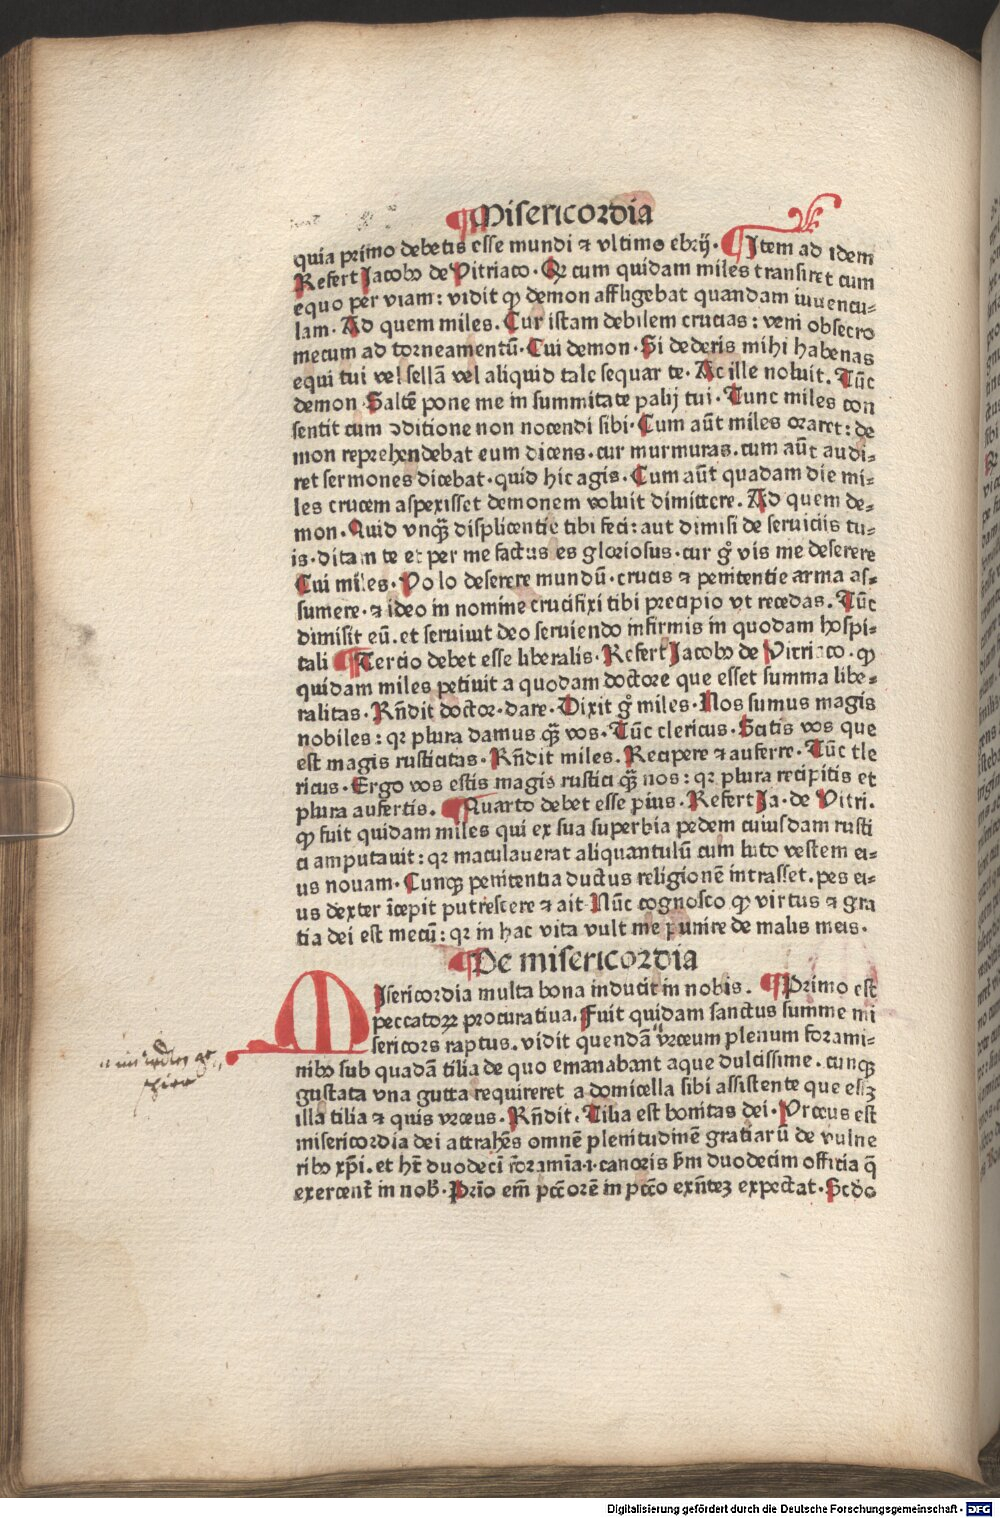 Misericordia
quia primo debetis esse mundi ⁊ vltimo ebrij. Item ad idem
Refert Jacobꝰ de Vitriaco. Qꝛ cum quidam miles transiret cum
equo per viam: vidit ꝙ demon affligebat quandam iuuencu⸗
lam. Ad quem miles. Cur istam debilem crucias: veni obsecro
mecum ad torneamentū. Cui demon. Si dederis mihi habenas
equi tui vel sellā vel aliquid tale sequar te. Ac ille noluit. Tūc
demon. Saltē pone me in summitate palij tui. Tunc miles con
sentit cum ꝯditione non nocendi sibi. Cum aūt miles oraret: de
mon reprehendebat eum dicens. cur murmuras. cum aūt audi⸗
ret sermones dicebat. quid hic agis. Cum aūt quadam die mi⸗
les crucem aspexisset demonem voluit dimittere. Ad quem de⸗
mon. Quid vnqȝ displicentie tibi feci: aut dimisi de seruiciis tu⸗
is. ditam te et per me factus es gloriosus. cur gͦ vis me deserere
Cui miles. Volo deserere mundū. crucis ⁊ penitentie arma as⸗
sumere. ⁊ ideo in nomine crucifixi tibi precipio vt recedas. Tūc
dimisit eū. et seruiuit deo seruiendo infirmis in quodam hospi⸗
tali Tercio debet esse liberalis. Refert Jacobꝰ de Vitriaco. ꝙ
quidam miles petiuit a quodam doctore que esset summa libe⸗
ralitas. Rñdit doctor. dare. Dixit gͦ miles. Nos sumus magis
nobiles: qꝛ plura damus qȝ vos. Tūc clericus. Scitis vos que
est magis rusticitas. Rñdit miles. Recipere ⁊ auferre. Tūc cle
ricus. Ergo vos estis magis rustici qȝ nos: qꝛ plura recipitis et
plura aufertis. Quarto debet esse pius. Refert Ja. de Vitri.
ꝙ fuit quidam miles qui ex sua superbia pedem cuiusdam rusti
ci amputauit: qꝛ maculauerat aliquantulū cum luto vestem ei⸗
us nouam. Cunqȝ penitentia ductus religionē intrasset. pes ei⸗
us dexter īcepit putrescere ⁊ ait Nūc cognosco ꝙ virtus ⁊ gra
tia dei est mecū: qꝛ in hac vita vult me punire de malis meis.
De misericordia
Misericordia multa bona inducit in nobis. Primo est
peccatoꝝ procuratiua. Fuit quidam sanctus summe mi
sericors raptus. vidit quendā vrceum plenum forami⸗
nibꝰ sub quadā tilia de quo emanabant aque dulcissime. cunqȝ
gustata vna gutta requireret a domicella sibi assistente que essȝ
illa tilia ⁊ quis vrceus. Rñdit. Tilia est bonitas dei. Vrceus est
misericordia dei attrahēs omnē plenitudinē gratiarū de vulne
ribꝰ xp̄i. et hꝫ duodecī foramīa .i. canoris ſm duodecim officia q̄
exercent̄ in nob. Prīo em̄ pctōrē in pctō exn̄teȝ expectat. Scdo
Digitalisierung gefördert durch die Deutsche Forschungsgemeinschaft - DFG